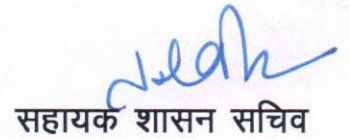 सहायक शासन सचिव